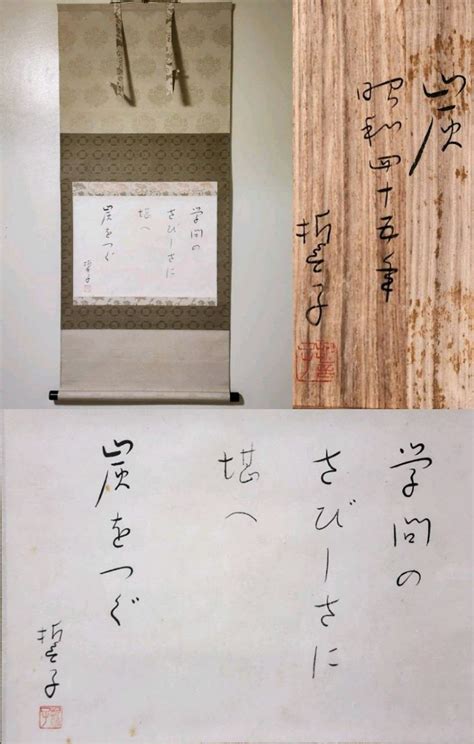 学問の
さびしさに
堪へ
炭をつぐ
誓子
炭
昭和四十五年
誓子
学問の
さびしさに
堪へ
炭をつぐ
誓子